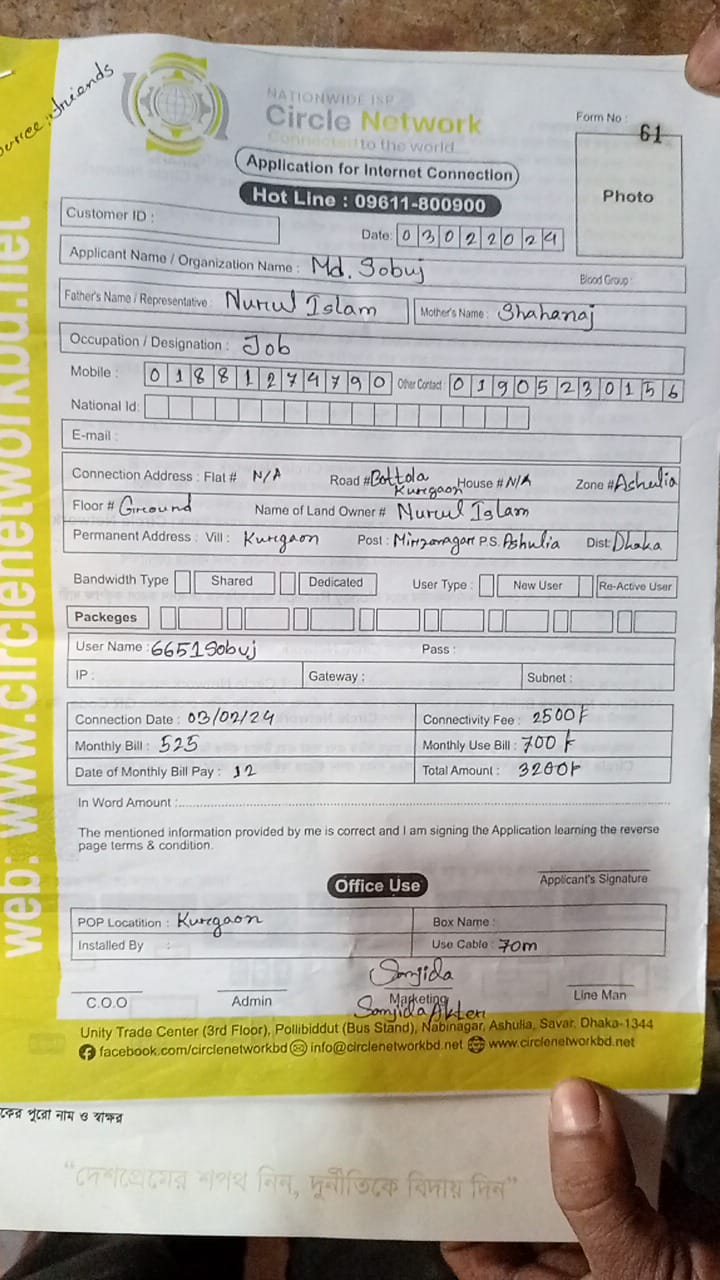 Source: friends
NATIONWIDE ISP
Circle Network
Connected to the world
Form No :
61
Photo
Application for Internet Connection
Hot Line : 09611-800900
Customer ID :
Date: 03022024
Applicant Name / Organization Name : Md. Sobuj
Blood Group :
Father's Name / Representative : Nurul Islam Mother's Name : Shahanaj
Occupation / Designation : Job
Mobile : 01881274790 Other Contact : 01905230156
National Id:
E-mail :
Connection Address : Flat # N/A Road # Bottola Kurgaon House # N/A Zone # Ashulia
Floor # Ground Name of Land Owner # Nurul Islam
Permanent Address : Vill : Kurgaon Post : Mirzanagar P.S. Ashulia Dist: Dhaka
Bandwidth Type Shared Dedicated User Type : New User Re-Active User
Packeges
User Name : 6651Sobuj Pass :
IP : Gateway : Subnet :
Connection Date : 03/02/24 Connectivity Fee : 2500
Monthly Bill : 525 Monthly Use Bill : 700
Date of Monthly Bill Pay : 12 Total Amount : 3200
In Word Amount :
The mentioned information provided by me is correct and I am signing the Application learning the reverse
page terms & condition.
Applicant's Signature
Office Use
POP Locatition : Kurgaon Box Name :
Installed By : Use Cable : 70m
Sanjida
C.O.O Admin Marketing Line Man
Sanjida Akter
Unity Trade Center (3rd Floor), Pollibiddut (Bus Stand), Nabinagar, Ashulia, Savar, Dhaka-1344
facebook.com/circlenetworkbd info@circlenetworkbd.net www.circlenetworkbd.net
web: www.circlenetworkbd.net
পুরো নাম ও স্বাক্ষর
“দেশপ্রেমের শপথ নিন, দুর্নীতিকে বিদায় দিন”